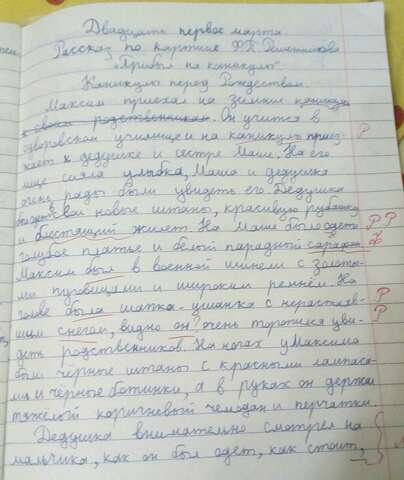 Двадцать первое марта
Рассказ по картине Ф.П. Решетникова
"Прибыл на каникулы".
Каникулы перед Рождеством.
Максим приехал на зимние каникулы
к своим родственникам. Он учится в
суворовском училище и на каникулы приез-
жает к дедушке и сестре Маше. На его
лице сияла улыбка, Маша и дедушка
очень рады были увидеть его. Дедушка
новые штаны, красивую рубашку
и блестящий жилет. На Маше было одето
голубое платье и белый парадный сарафан.
Максим был в военной шинели с золоты-
ми пуговицами и широким ремнём. На
голове была шапка-ушанка с нерастаяв-
шим снегом, видно он очень торопился уви-
деть родственников. На ногах у Максима
были чёрные штаны с красными лампаса-
ми и чёрные ботинки, а в руках он держал
тяжёлый коричневый чемодан и перчатки.
Дедушка внимательно смотрел на
мальчика, как он был одет, как стоит,